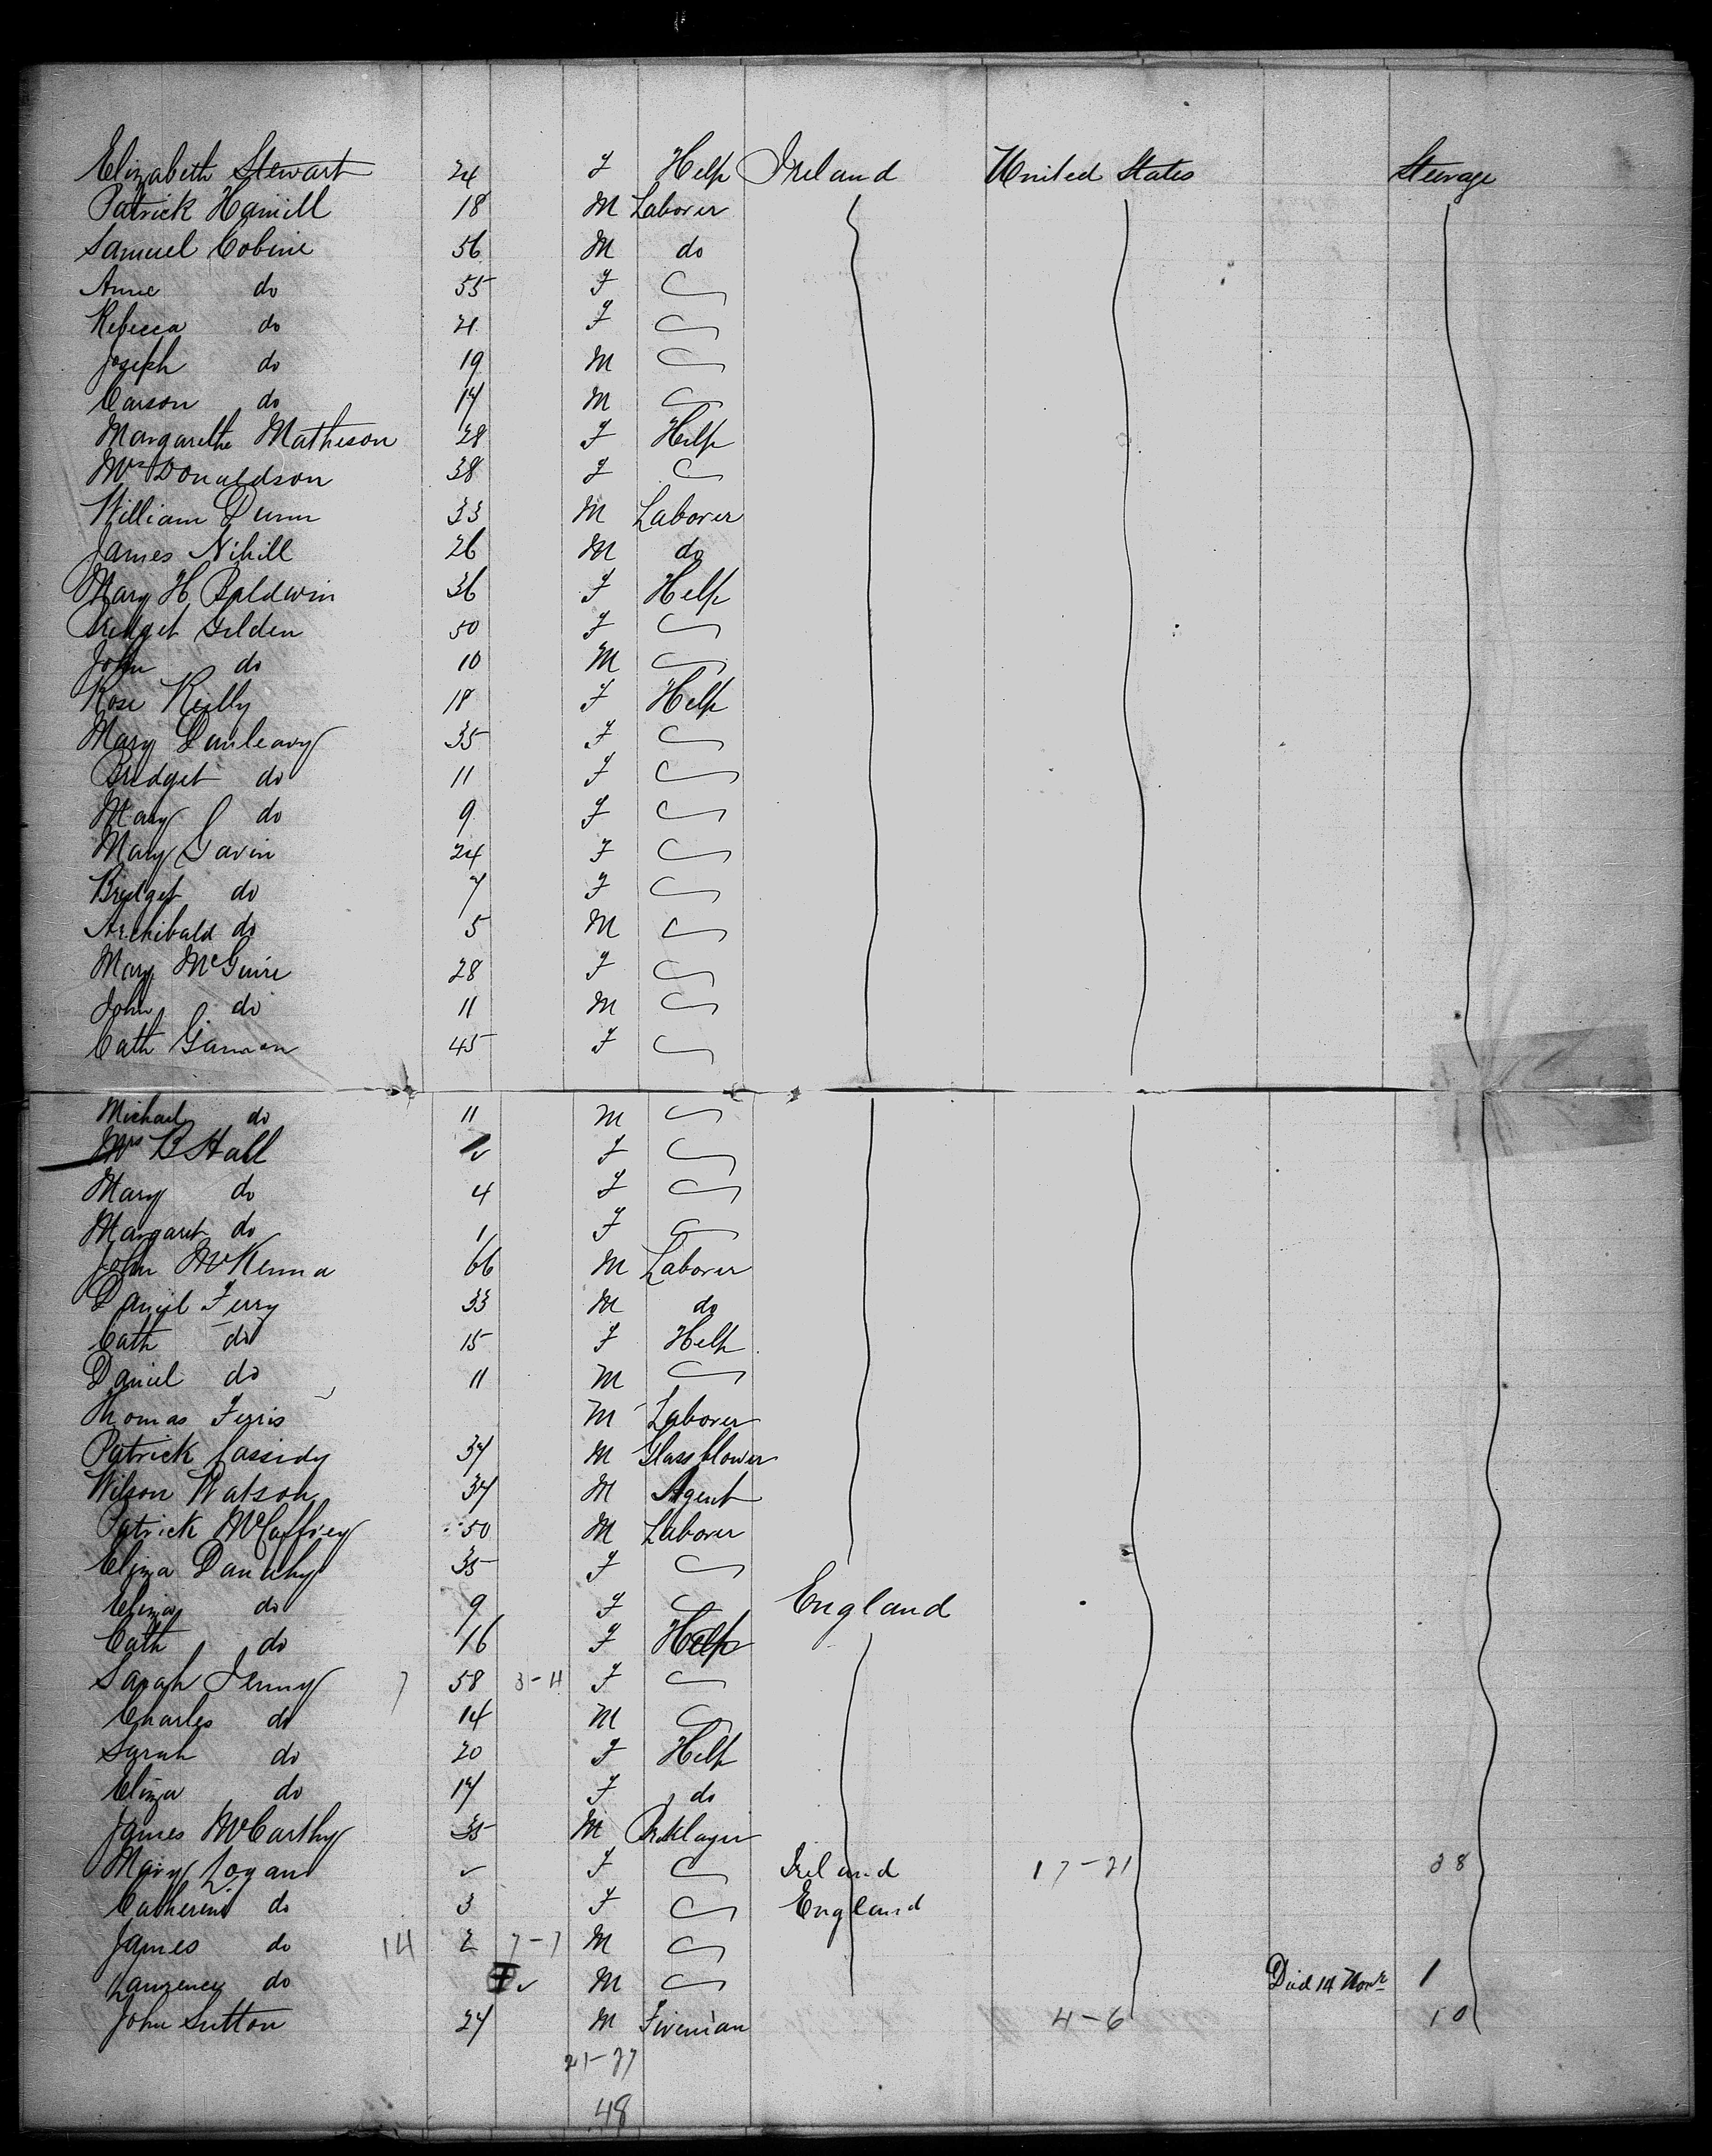 Elizabeth Stewart 24 F Help Ireland United States Steerage
Patrick Hamill 18 M Laborer
Samuel Cobine 56 M do
Anne do 55 F
Rebecca do 21 F
Joseph do 19 M
Carson do 17 M
Margarethe Matheson 28 F Help
Mrs Donaldson 38 F
William Dunn 33 M Laborer
James Nihill 26 M do
Mary H Baldwin 36 F Help
Bridget Gilden 50 F
John do 10 M
Rose Reilly 18 F Help
Mary Dunleavy 35 F
Bridget do 11 F
Mary do 9 F
Mary Gavin 24 F
Bridget do 7 F
Archibald do 5 M
Mary McGuire 28 F
John do 11 M
Cath 45 F
Michael do 11 M
Mrs B Hall F
Mary do 4 F
Margaret do 1 F
John McKenna 66 M Laborer
Daniel Ferry 33 M do
Cath do 15 F Help
Daniel do 11 M
Thomas Ferris M Laborer
Patrick Cassidy 37 M Glassblower
Wilson Watson 37 M Agent
Patrick McCaffrey 50 M Laborer
Eliza Danahy 35 F
Eliza do 9 F England
Cath do 16 F Help
Sarah Jenny 7 58 3-4 F
Charles do 14 M
Sarah do 20 F Help
Eliza do 17 F do
James McCarthy 35 M Bricklayer
Mary Logan F Ireland 17-21 38
Catherine do 3 F England
James do 14 2 7-7 M
Laurency do M Died 14 Novr 1
John Sutton 27 M Fireman 4-6 10
21-27
48